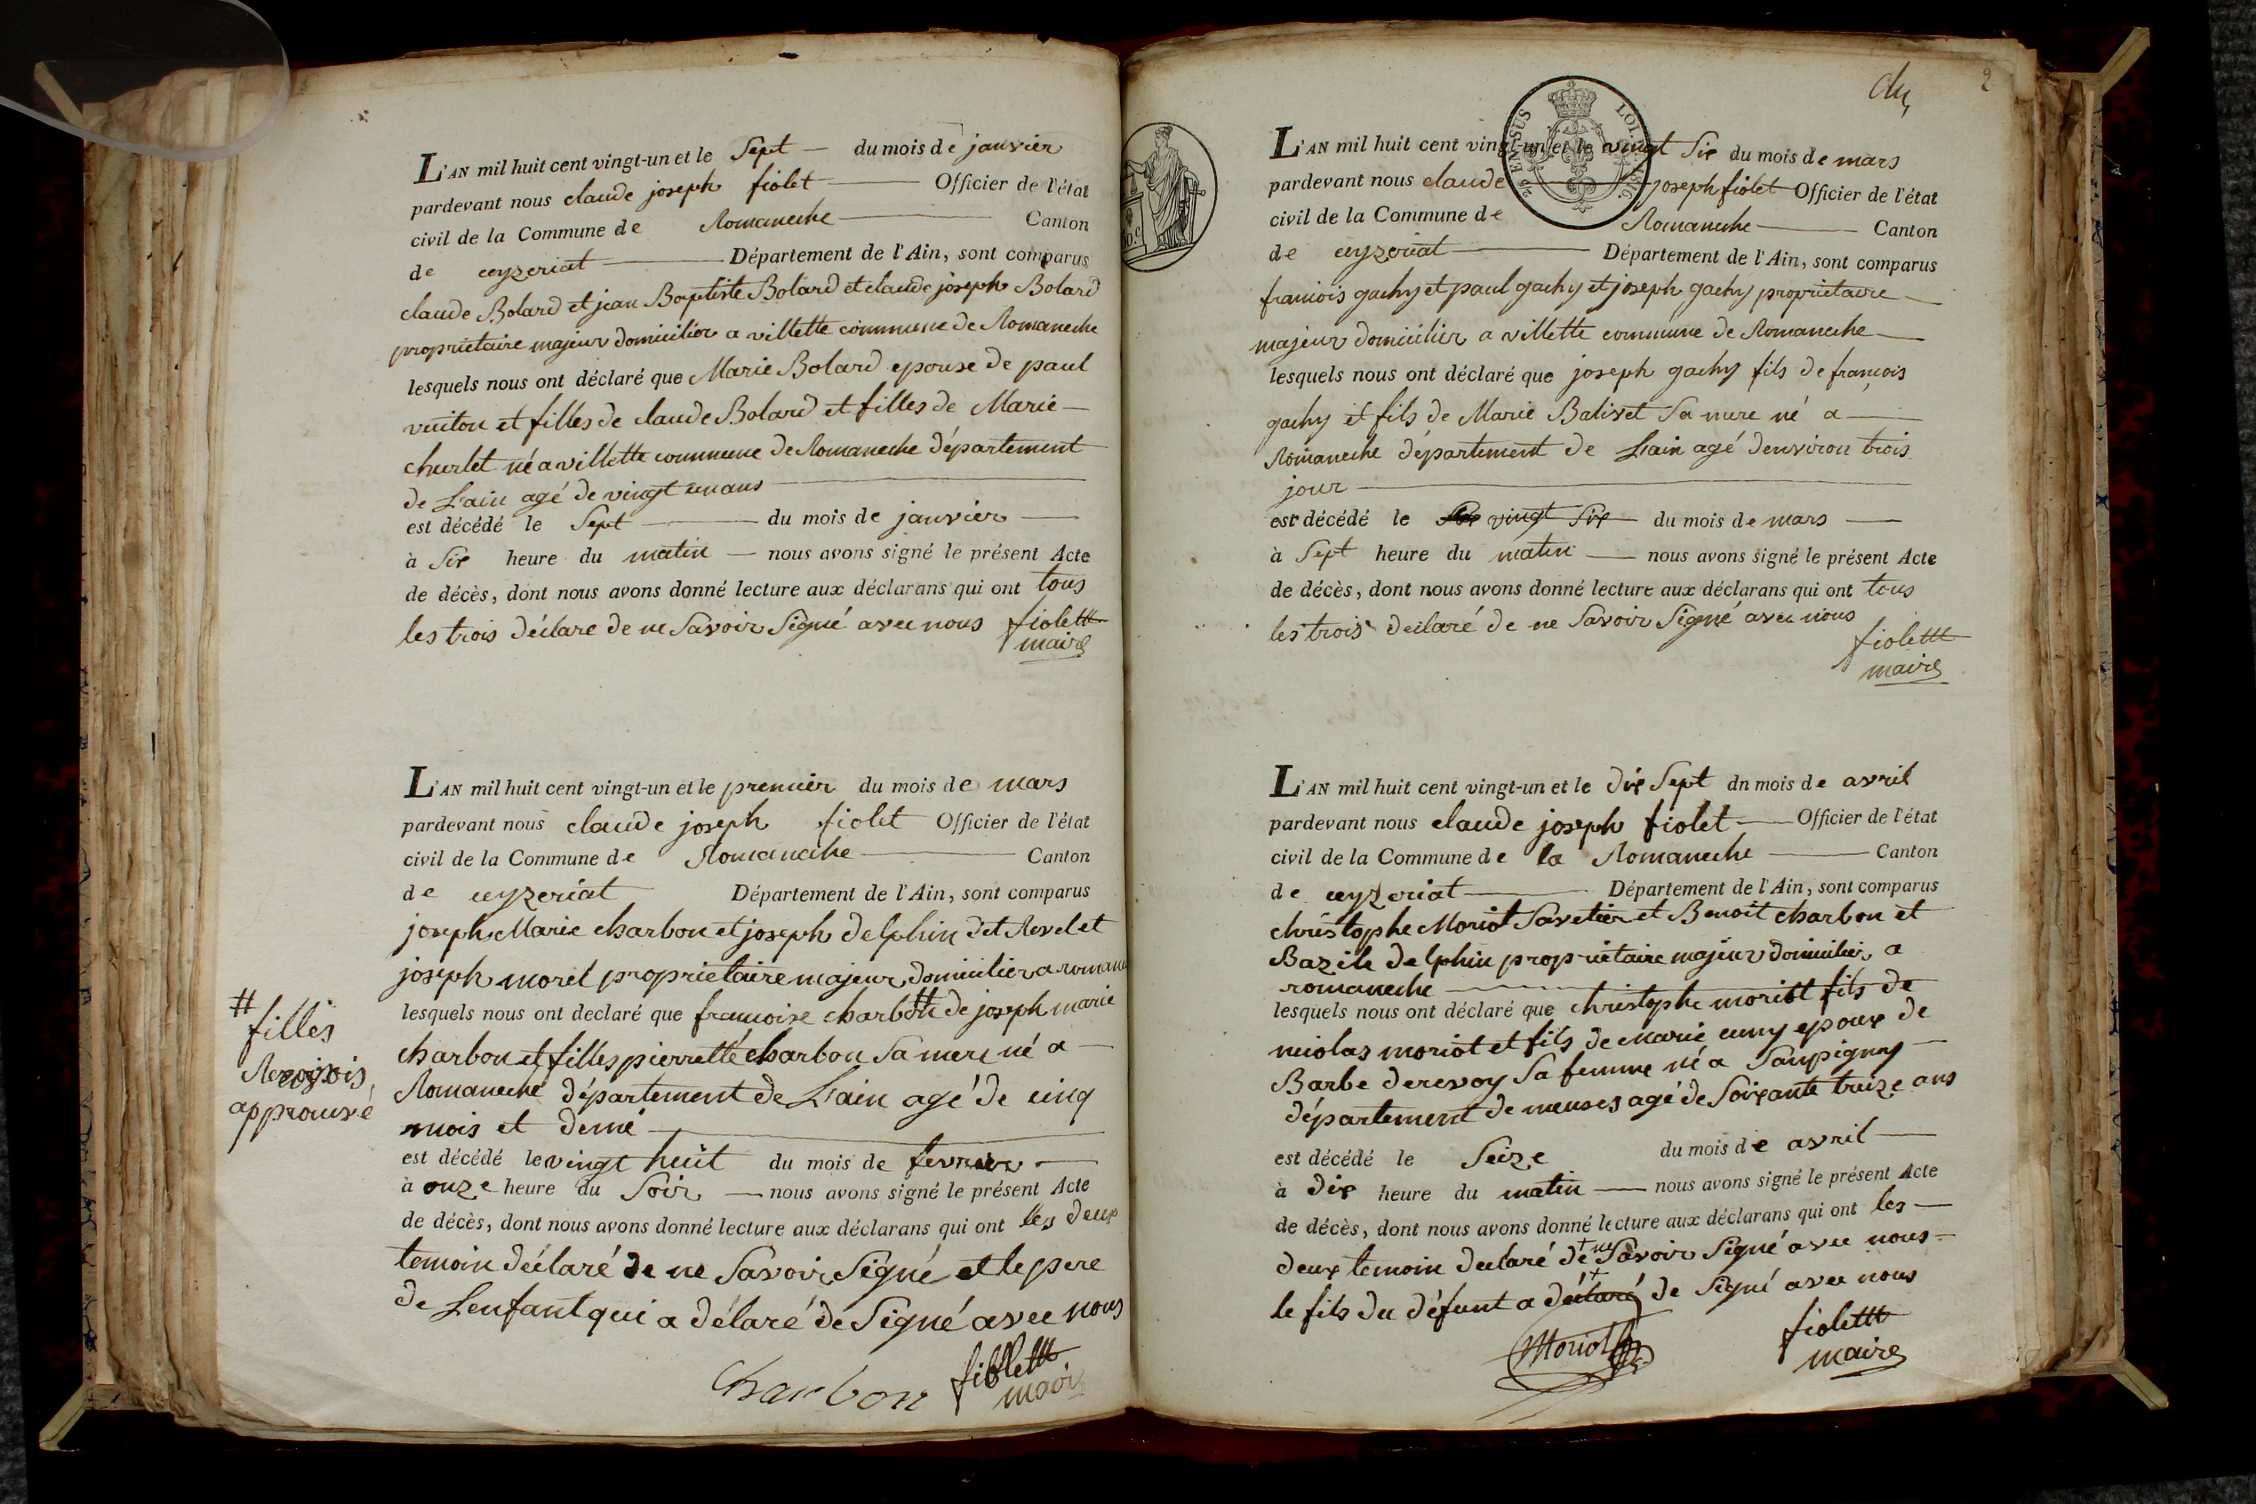 L'AN mil huit cent vingt-un et le Sept du mois de janvier
pardevant nous claude joseph fiolet Officier de l'état
civil de la Commune de Romaneche Canton
de ceyzeriat Département de l'Ain, sont comparus
claude Bolard et jean Baptiste Bolard et claude joseph Bolard
proprietaire majeur domicilier a villette commune de Romaneche
lesquels nous ont déclaré que Marie Bolard epouse de paul
vuiton et filles de claude Bolard et filles de Marie
churlet né a villette commune de Romaneche département
de L'ain agé de vingt un ans
est décédé le Sept du mois de janvier
à Six heure du matin nous avons signé le présent Acte
de décès, dont nous avons donné lecture aux déclarans qui ont tous
les trois déclare de ne Savoir Signé avec nous fiolett
maire
L'AN mil huit cent vingt-un et le premier du mois de mars
pardevant nous claude joseph fiolet Officier de l'état
civil de la Commune de Romaneche Canton
de ceyzeriat Département de l'Ain, sont comparus
joseph Marie charbon et joseph delphin dit Revel et
joseph morel proprietaire majeur domicilier a romane
lesquels nous ont declaré que francoise charbon # de joseph marie
charbon et filles pierrette charbon Sa mere né a
Romaneche département de L'ain agé de cinq
mois et demi
est décédé le vingt huit du mois de fevrier
à onze heure du Soir nous avons signé le présent Acte
de décès, dont nous avons donné lecture aux déclarans qui ont les deux
temoin déclaré de ne Savoir Signé et le pere
de Lenfant qui a délaré de Signé avec nous
Charbon fiolett
maire
#
filles
approuvé
du 2
L'AN mil huit cent vingt-un et le vingt Six du mois de mars
pardevant nous claude joseph fiolet Officier de l'état
civil de la Commune de Romaneche Canton
de ceyzeriat Département de l'Ain, sont comparus
francois gachy et paul gachy et joseph gachy proprietaire
majeur domicilier a villette commune de Romaneche
lesquels nous ont déclaré que joseph gachy fils de françois
gachy et fils de Marie Balivet Sa mere né a
Romaneche département de L'ain agé denviron trois
jour
est décédé le vingt Six du mois de mars
à Sept heure du matin nous avons signé le présent Acte
de décès, dont nous avons donné lecture aux déclarans qui ont tous
les trois declaré de ne Savoir Signé avec nous
fiolett
maire
L'AN mil huit cent vingt-un et le dix Sept dn mois de avril
pardevant nous claude joseph fiolet Officier de l'état
civil de la Commune de la Romaneche Canton
de ceyzeriat Département de l'Ain, sont comparus
christophe Moriot Savetier et Benoit charbon et
Bazile delphin proprietaire majeur domicilier a
romaneche
lesquels nous ont déclaré que christophe moriot fils de
nicolas moriot et fils de Marie cuny epoux de
Barbe derevoy Sa femme né a Sampigny
département de meuses agé de Soixante treize ans
est décédé le Seize du mois de avril
à dix heure du matin nous avons signé le présent Acte
de décès, dont nous avons donné lecture aux déclarans qui ont les
deux temoin declaré de + ne Savoir Signé avec nous
le fils du défunt a déclaré de Signé avec nous
Moriot fiolett
maire